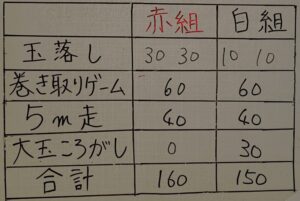 赤組 白組
玉落し 30 30 10 10
巻き取りゲーム 60 60
5m走 40 40
大玉ころがし 0 30
合計 160 150